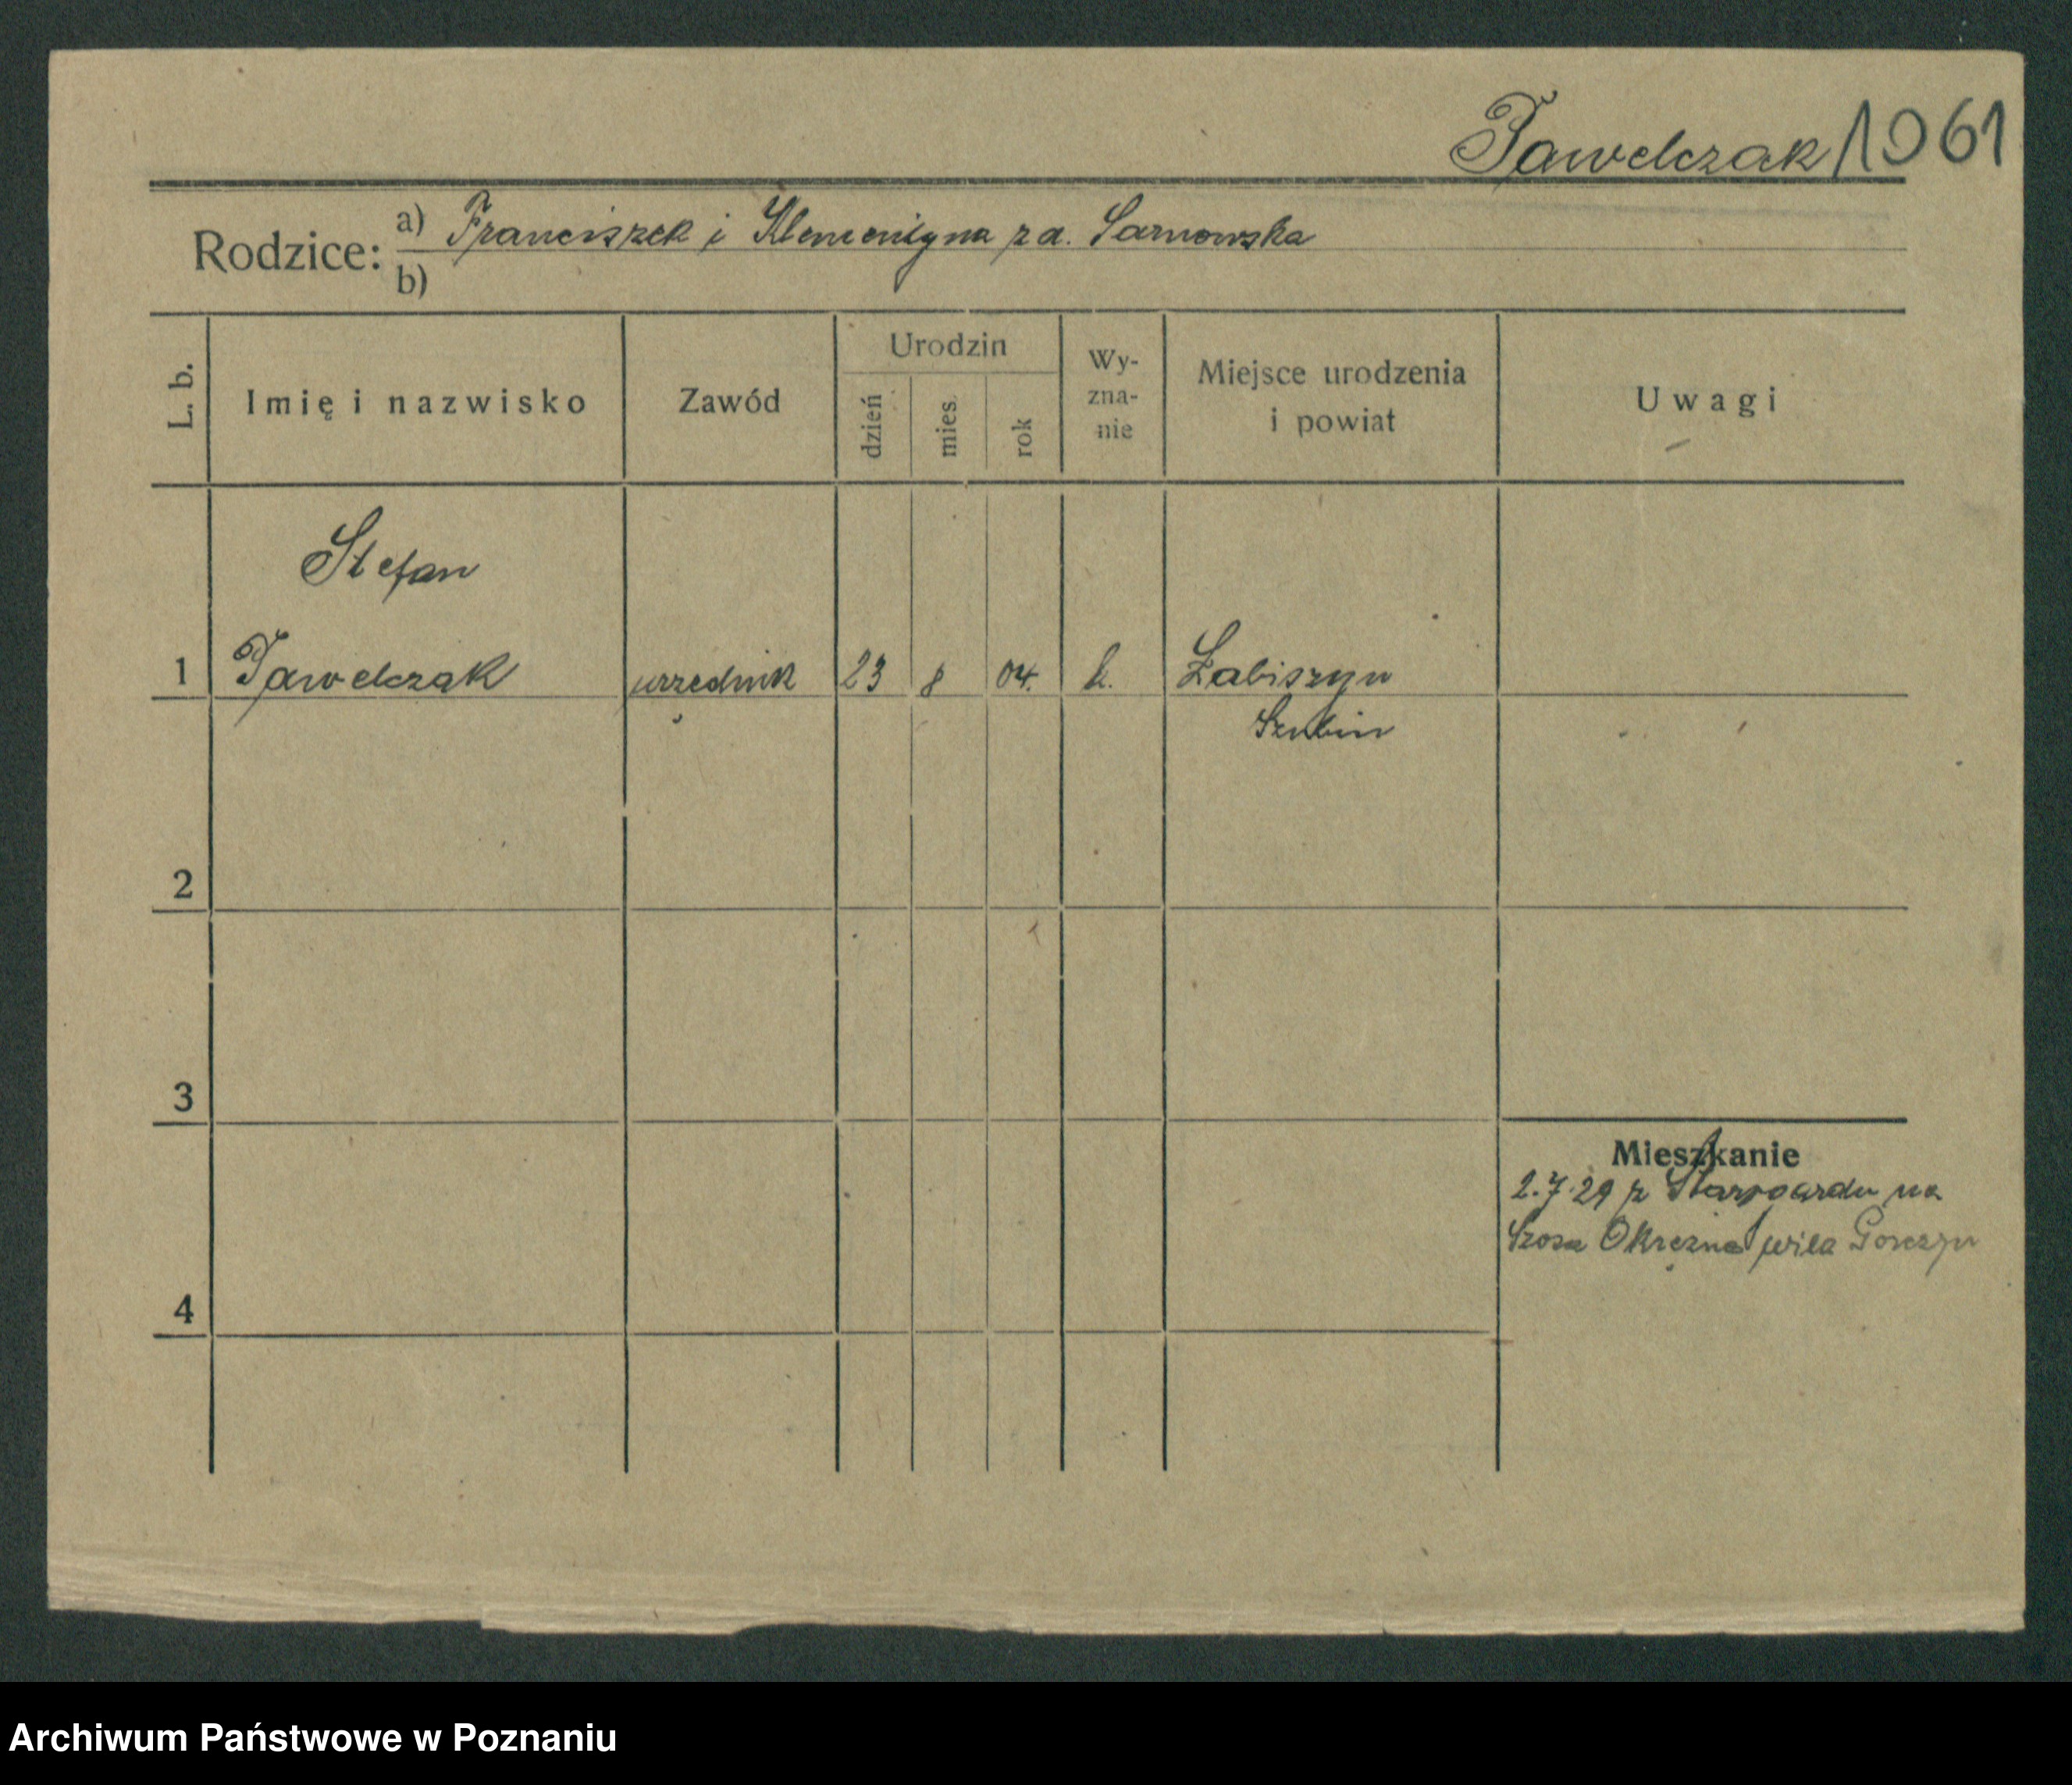 Pawelczak 1961
Rodzice: a) Franciszek i Klementyna z d. Sarnowska
b)
L. b.
Imię i nazwisko
Zawód
Urodzin
dzień
mies.
rok
Wy-
zna-
nie
Miejsce urodzenia
i powiat
Uwagi
Stefan
1 Pawelczak urzędnik 23 8 04. k. Łabiszyn
Szubin
2
3
Mieszkanie
2.7.29 z Starogardu na
Szosa Okrężna willa Gorczyn
4
Archiwum Państwowe w Poznaniu